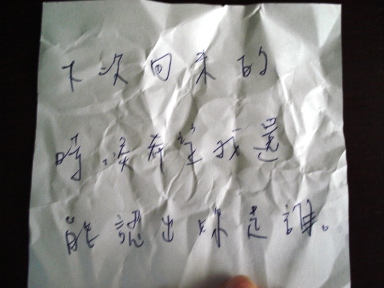 下次回來的
時候希望我還
能認出妳是誰。